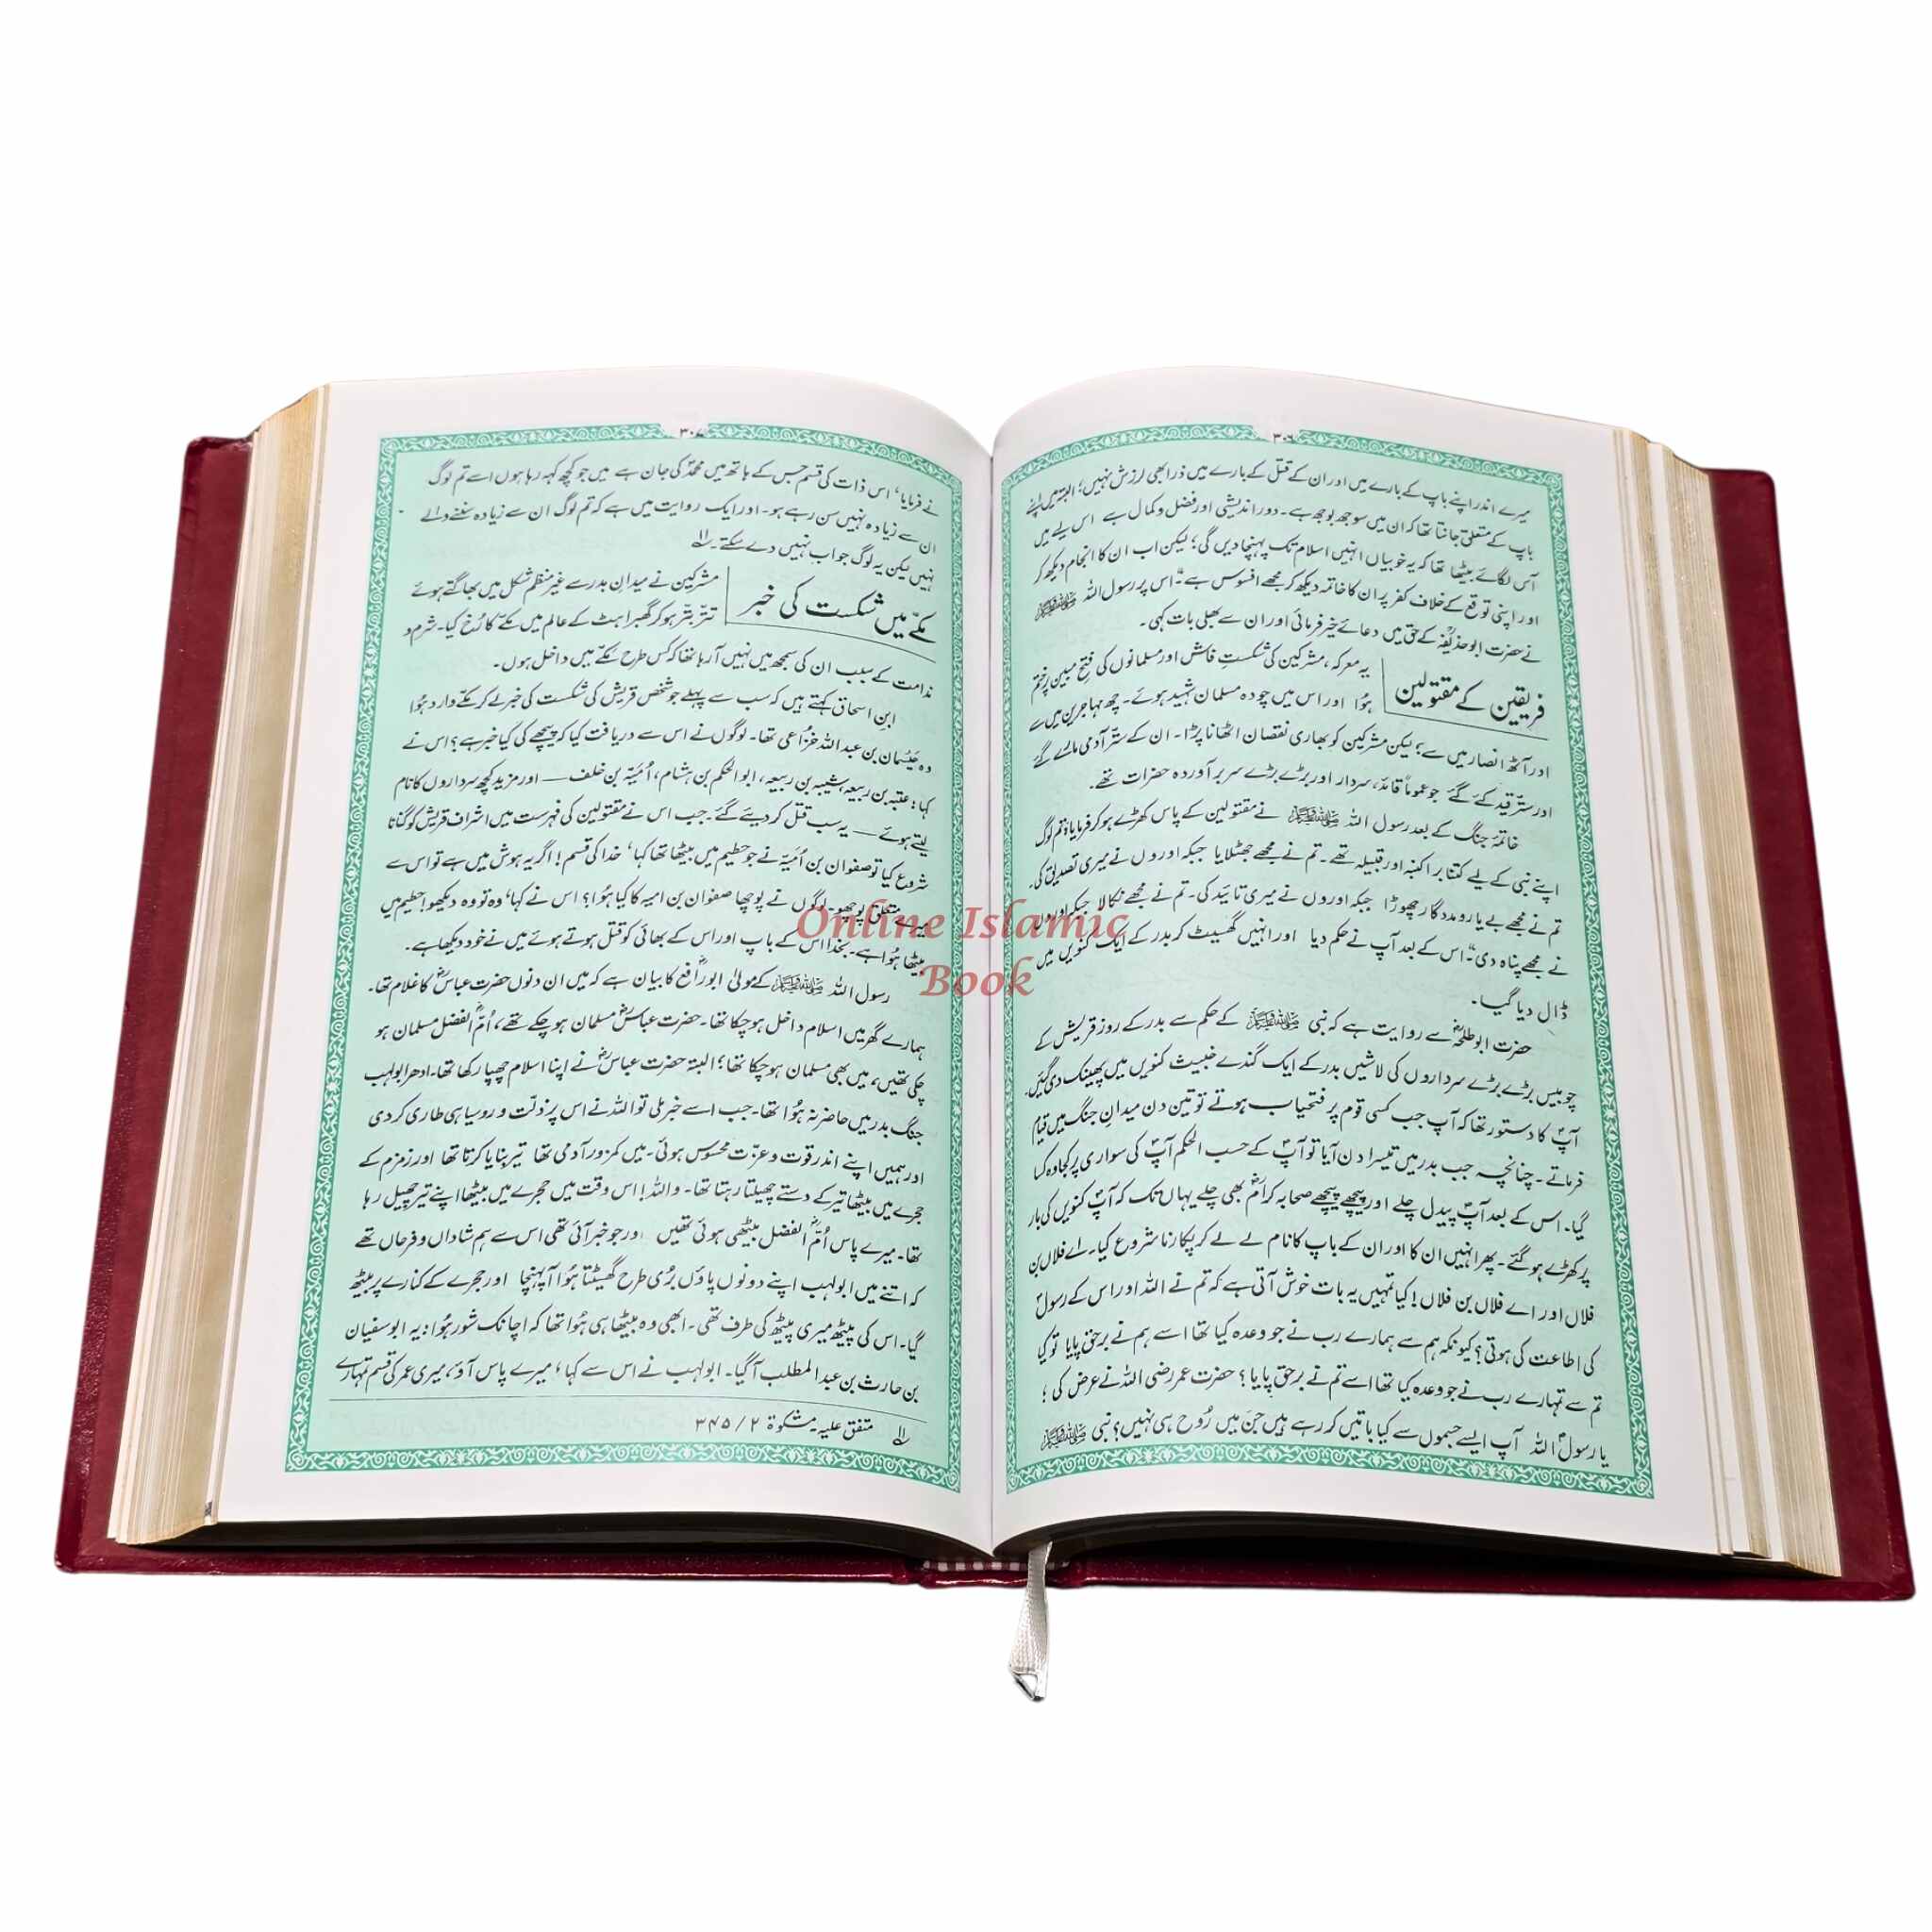 ۳۰۶
میرے اندر اپنے باپ کے بارے میں اور ان کے قتل کے بارے میں ذرا بھی لرزش نہیں؛ البتہ میں اپنے
باپ کے متعلق جانتا تھا کہ ان میں سوجھ بوجھ ہے۔ دور اندیشی اور فضل و کمال ہے اس لیے میں
آس لگائے بیٹھا تھا کہ یہ خوبیاں انہیں اسلام تک پہنچا دیں گی؛ لیکن اب ان کا انجام دیکھ کر
اور اپنی توقع کے خلاف کفر پر ان کا خاتمہ دیکھ کر مجھے افسوس ہے"۔ اس پر رسول اللہ ﷺ
نے حضرت ابو حذیفہؓ کے حق میں دعائے خیر فرمائی اور ان سے بھلی بات کہی۔
فریقین کے مقتولین
یہ معرکہ، مشرکین کی شکستِ فاش اور مسلمانوں کی فتح مبین پر ختم
ہُوا اور اس میں چودہ مسلمان شہید ہوئے۔ چھ مہاجرین میں سے
اور آٹھ انصار میں سے؛ لیکن مشرکین کو بھاری نقصان اٹھانا پڑا۔ ان کے ستّر آدمی مارے گئے
اور ستّر قید کئے گئے جو عموماً قائد، سردار اور بڑے بڑے سربر آوردہ حضرات تھے۔
خاتمۂ جنگ کے بعد رسول اللہ ﷺ نے مقتولین کے پاس کھڑے ہو کر فرمایا: تم لوگ
اپنے نبی کے لیے کتنا برا کنبہ اور قبیلہ تھے۔ تم نے مجھے جھٹلایا جبکہ اوروں نے میری تصدیق کی۔
تم نے مجھے بے یار و مددگار چھوڑا جبکہ اوروں نے میری تائید کی۔ تم نے مجھے نکالا جبکہ اوروں
نے مجھے پناہ دی"۔ اس کے بعد آپ نے حکم دیا اور انہیں گھسیٹ کر بدر کے ایک کنویں میں
ڈال دیا گیا۔
حضرت ابو طلحہؓ سے روایت ہے کہ نبی ﷺ کے حکم سے بدر کے روز قریش کے
چوبیس بڑے بڑے سرداروں کی لاشیں بدر کے ایک گندے خبیث کنویں میں پھینک دی گئیں۔
آپؐ کا دستور تھا کہ آپ جب کسی قوم پر فتحیاب ہوتے تو تین دن میدانِ جنگ میں قیام
فرماتے۔ چنانچہ جب بدر میں تیسرا دن آیا تو آپؐ کے حسب الحکم آپؐ کی سواری پر کجاوہ کسا
گیا۔ اس کے بعد آپؐ پیدل چلے اور پیچھے پیچھے صحابہ کرامؓ بھی چلے یہاں تک کہ آپؐ کنویں کی بار
پر کھڑے ہو گئے۔ پھر انہیں ان کا اور ان کے باپ کا نام لے لے کر پکارنا شروع کیا۔ اے فلاں بن
فلاں اور اے فلاں بن فلاں! کیا تمہیں یہ بات خوش آتی ہے کہ تم نے اللہ اور اس کے رسولؐ
کی اطاعت کی ہوتی؟ کیونکہ ہم سے ہمارے رب نے جو وعدہ کیا تھا اسے ہم نے برحق پایا تو کیا
تم سے تمہارے رب نے جو وعدہ کیا تھا اسے تم نے برحق پایا؟ حضرت عمر رضی اللہ نے عرض کی؛
یا رسولؐ اللہ آپ ایسے جسموں سے کیا باتیں کر رہے ہیں جن میں رُوح ہی نہیں؟ نبی ﷺ
۳۰۷
نے فرمایا، اس ذات کی قسم جس کے ہاتھ میں محمدؐ کی جان ہے میں جو کچھ کہہ رہا ہوں اسے تم لوگ
ان سے زیادہ نہیں سن رہے ہو۔ اور ایک روایت میں ہے کہ تم لوگ ان سے زیادہ سننے والے
نہیں لیکن یہ لوگ جواب نہیں دے سکتے۔
مکّے میں شکست کی خبر
مشرکین نے میدانِ بدر سے غیر منظم شکل میں بھاگتے ہوئے
تتر بتر ہو کر گھبراہٹ کے عالم میں مکّے کا رُخ کیا۔ شرم و
ندامت کے سبب ان کی سمجھ میں نہیں آ رہا تھا کہ کس طرح مکّے میں داخل ہوں۔
ابن اسحاق کہتے ہیں کہ سب سے پہلے جو شخص قریش کی شکست کی خبر لے کر مکّے وارد ہُوا
وہ حَیسُمان بن عبداللہ خزاعی تھا۔ لوگوں نے اس سے دریافت کیا کہ پیچھے کی کیا خبر ہے؟ اس نے
کہا: عتبہ بن ربیعہ، شیبہ بن ربیعہ، ابو الحکم بن ہشام، اُمَیّہ بن خلف — اور مزید کچھ سرداروں کا نام
لیتے ہوئے — یہ سب قتل کر دیئے گئے۔ جب اس نے مقتولین کی فہرست میں اشراف قریش کو گنانا
شروع کیا تو صفوان بن اُمیّہ نے جو حطیم میں بیٹھا تھا کہا، خدا کی قسم! اگر یہ ہوش میں ہے تو اس سے
میرے متعلق پوچھو۔ لوگوں نے پوچھا صفوان بن امیہ کا کیا ہوا؟ اس نے کہا، وہ تو وہ دیکھو حطیم میں
بیٹھا ہُوا ہے۔ بخدا اس کے باپ اور اس کے بھائی کو قتل ہوتے ہوئے میں نے خود دیکھا ہے۔
رسول اللہ ﷺ کے مولیٰ ابو رافعؓ کا بیان ہے کہ میں ان دنوں حضرت عباسؓ کا غلام تھا۔
ہمارے گھر میں اسلام داخل ہو چکا تھا۔ حضرت عباسؓ مسلمان ہو چکے تھے، اُمّ الفضلؓ مسلمان ہو
چکی تھیں، میں بھی مسلمان ہو چکا تھا؛ البتہ حضرت عباسؓ نے اپنا اسلام چھپا رکھا تھا۔ ادھر ابو لہب
جنگ بدر میں حاضر نہ ہُوا تھا۔ جب اسے خبر ملی تو اللہ نے اس پر ذلّت و روسیاہی طاری کر دی
اور ہمیں اپنے اندر قوت و عزّت محسوس ہوئی۔ میں کمزور آدمی تھا تیر بنایا کرتا تھا اور زمزم کے
حجرے میں بیٹھا تیر کے دستے چھیلتا رہتا تھا۔ واللہ! اس وقت میں حجرے میں بیٹھا اپنے تیر چھیل رہا
تھا۔ میرے پاس اُمّ الفضلؓ بیٹھی ہوئی تھیں اور جو خبر آئی تھی اس سے ہم شاداں و فرحاں تھے
کہ اتنے میں ابو لہب اپنے دونوں پاؤں بُری طرح گھسیٹتا ہُوا آ پہنچا اور حجرے کے کنارے پر بیٹھ
گیا۔ اس کی پیٹھ میری پیٹھ کی طرف تھی۔ ابھی وہ بیٹھا ہی ہُوا تھا کہ اچانک شور ہُوا: یہ ابو سفیان
بن حارث بن عبدالمطلب آ گیا۔ ابو لہب نے اس سے کہا، میرے پاس آؤ، میری عمر کی قسم تمہارے
متفق علیہ۔ مشکوٰۃ ۲/۳۴۵
Online Islamic
Book